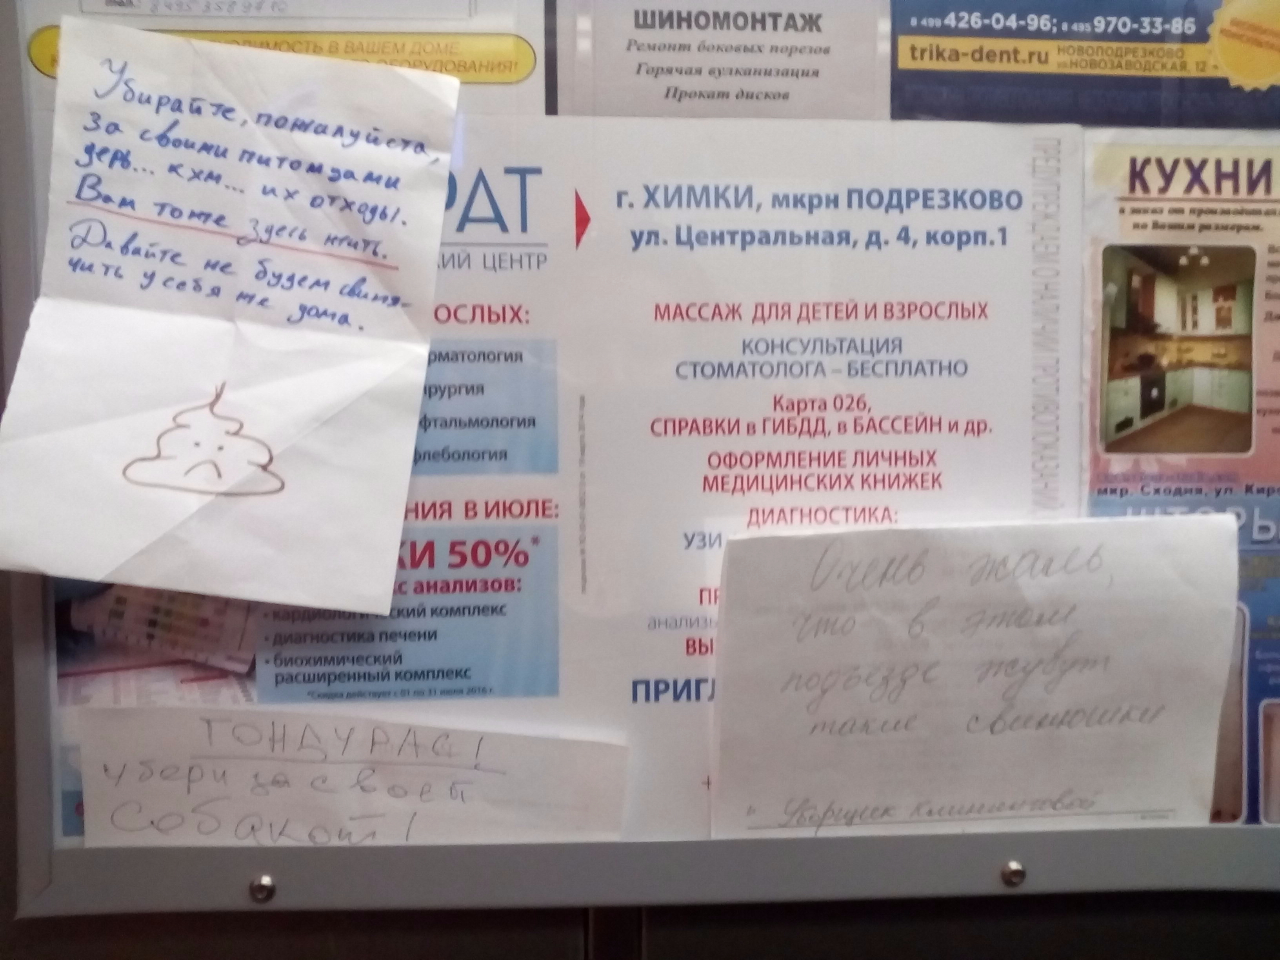 8 495 358 97 10
ДИМОСТЬ В ВАШЕМ ДОМЕ
ОБОРУДОВАНИЯ!
ШИНОМОНТАЖ
Ремонт боковых порезов
Горячая вулканизация
Прокат дисков
8 499 426-04-96; 8 495 970-33-86
trika-dent.ru
НОВОПОДРЕЗКОВО
ул. НОВОЗАВОДСКАЯ, 12
Убирайте, пожалуйста,
за своими питомцами
дерь... кхм... их отходы.
Вам тоже здесь жить.
Давайте не будем свиня-
чить у себя же дома.
РАТ
КИЙ ЦЕНТР
ОСЛЫХ:
рматология
ирургия
фтальмология
флебология
НИЯ В ИЮЛЕ:
КИ 50%*
с анализов:
• кардиологический комплекс
• диагностика печени
• биохимический
расширенный комплекс
*Скидка действует с 01 по 31 июля 2016 г.
г. ХИМКИ, мкрн ПОДРЕЗКОВО
ул. Центральная, д. 4, корп.1
МАССАЖ ДЛЯ ДЕТЕЙ И ВЗРОСЛЫХ
КОНСУЛЬТАЦИЯ
СТОМАТОЛОГА – БЕСПЛАТНО
Карта 026,
СПРАВКИ в ГИБДД, в БАССЕЙН и др.
ОФОРМЛЕНИЕ ЛИЧНЫХ
МЕДИЦИНСКИХ КНИЖЕК
ДИАГНОСТИКА:
УЗИ
ПР
анализы
ВЫ
ПРИГЛ
+
КУХНИ
на заказ от производителя
по Вашим размерам.
мкр. Сходня, ул. Кир
ШТОРЫ
ГОНДУРАС!
убери за своей
Собакой!
Очень жаль,
что в этом
подъезде живут
такие свинюшки